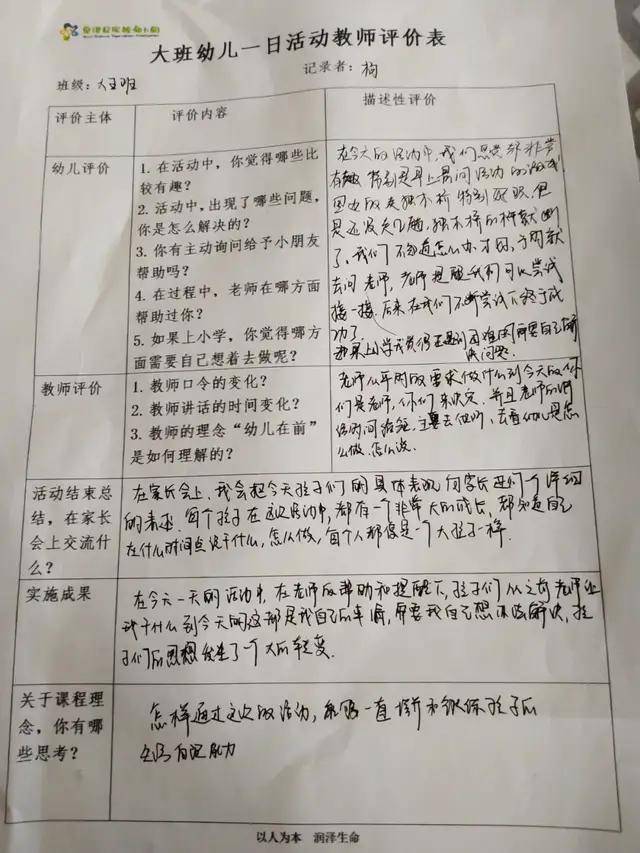 大班幼儿一日活动教师评价表
班级：大五班
记录者：杨
评价主体
评价内容
描述性评价
幼儿评价
1. 在活动中，你觉得哪些比
较有趣？
2. 活动中，出现了哪些问题，
你是怎么解决的？
3. 你有主动询问给予小朋友
帮助吗？
4. 在过程中，老师在哪方面
帮助过你？
5. 如果上小学，你觉得哪方
面需要自己想着去做呢？
在今天的活动中，我们感觉都非常
有趣，特别是早上晨间活动的游戏
因为 独木桥特别 但
是 独木桥的 断
了，我们不知道怎么办才好，于是就
去问老师，老师提醒我们可以尝试
接一接，后来在我们不断尝试下终于成
功了。
如果上小学 自己解
决问题。
教师评价
1. 教师口令的变化？
2. 教师讲话的时间变化？
3. 教师的理念“幼儿在前”
是如何理解的？
老师从平时的要求做什么到今天的你
们是老师，你们来决定，并且老师的讲
话时间缩短，主要去倾听、去看幼儿是怎
么做、怎么说。
活动结束总
结，在家长
会上交流什
么？
在家长会上，我会把今天孩子们的具体表现向家长进行一个详细
的表述。每个孩子在这次活动中，都有一个非常大的成长，都知道自己
在什么时间点该干什么，怎么做，每个人都像是一个大孩子一样。
实施成果
在今天一天的活动中，在老师的帮助和提醒下，孩子们从之前老师让
我干什么到今天的这都是我自己的事情，需要我自己想办法解决，孩
子们的思想发生了一个大的转变。
关于课程理
念，你有哪
些思考？
怎样通过这次的活动，来 一直培养和锻炼孩子的
能力
以人为本 润泽生命